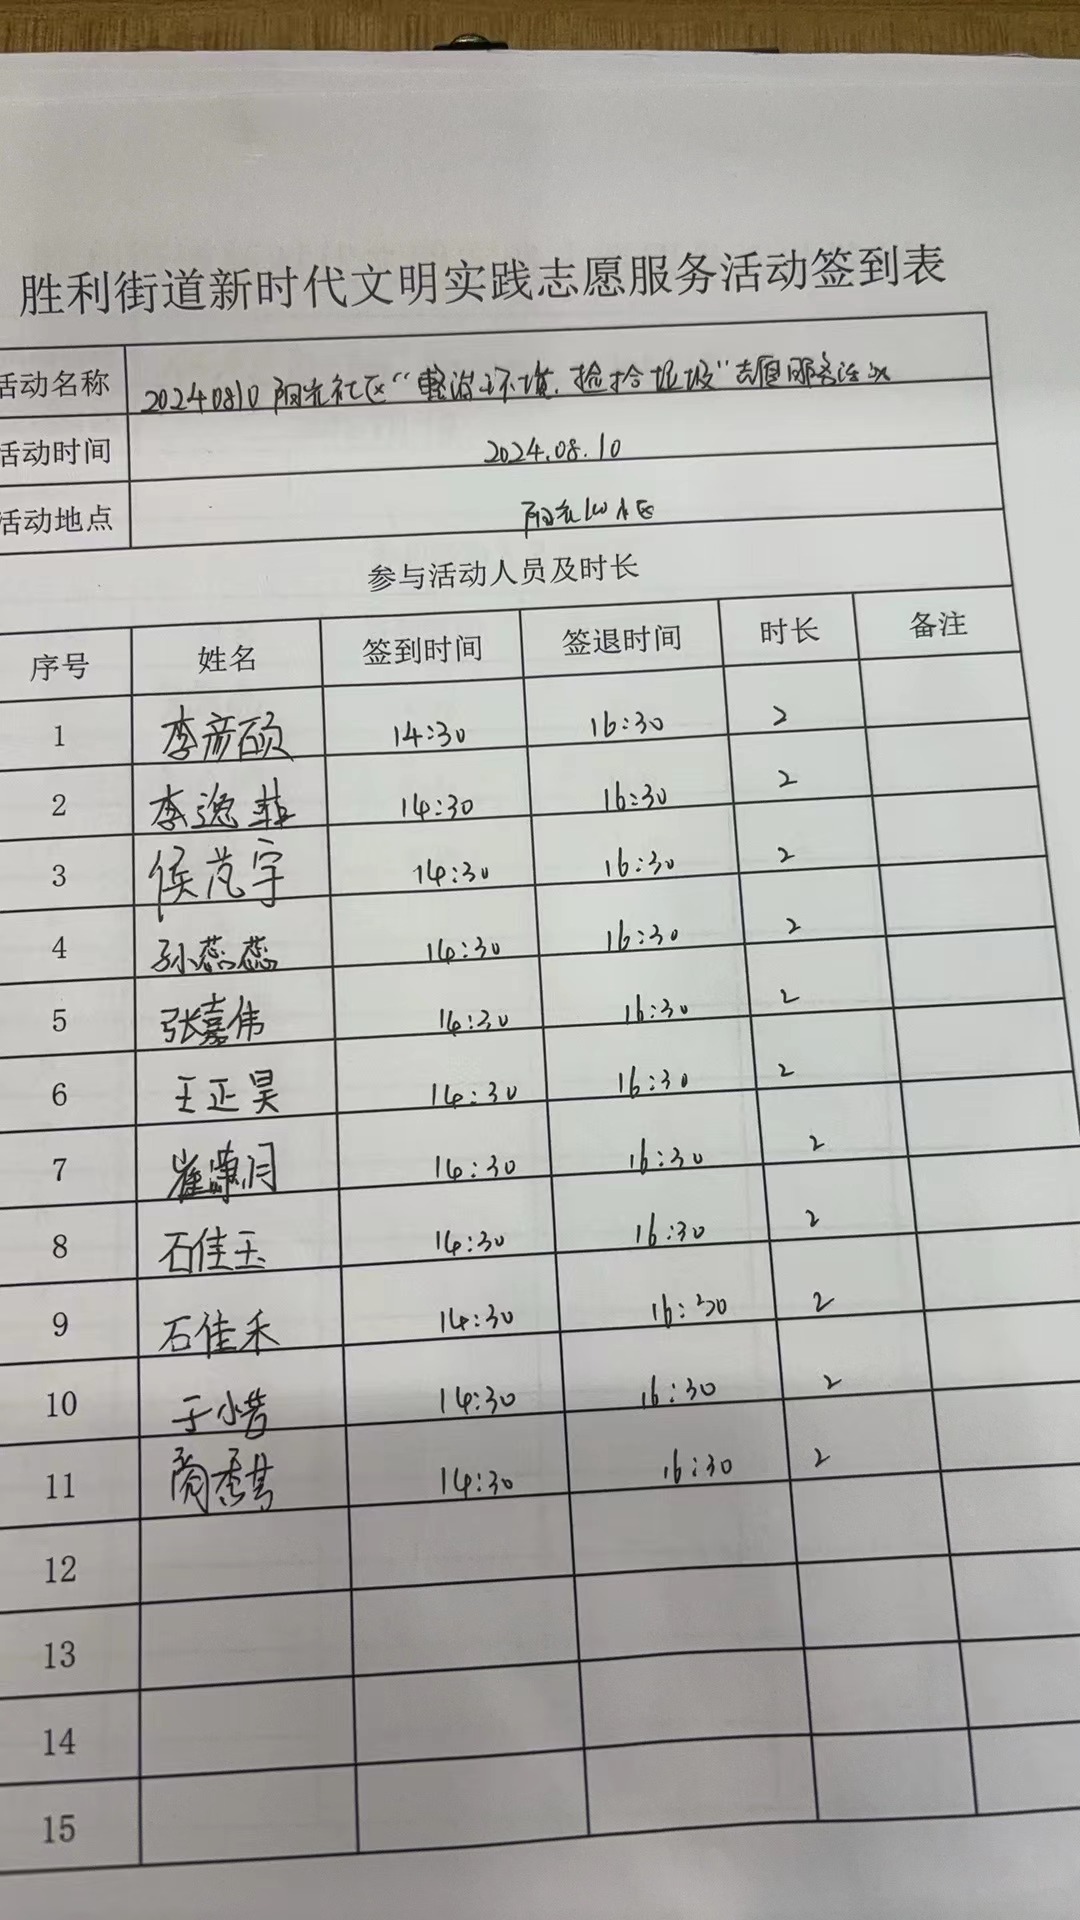 胜利街道新时代文明实践志愿服务活动签到表
活动名称 20240810 阳光社区“整治环境,捡拾垃圾”志愿服务活动
活动时间 2024.08.10
活动地点 阳光小区
参与活动人员及时长
序号 姓名 签到时间 签退时间 时长 备注
1 李彦硕 14:30 16:30 2
2 李逸菲 14:30 16:30 2
3 侯范宇 14:30 16:30 2
4 孙蕊蕊 14:30 16:30 2
5 张嘉伟 14:30 16:30 2
6 王正昊 14:30 16:30 2
7 崔 14:30 16:30 2
8 石佳玉 14:30 16:30 2
9 石佳禾 14:30 16:30 2
10 于小 14:30 16:30 2
11 14:30 16:30 2
12
13
14
15